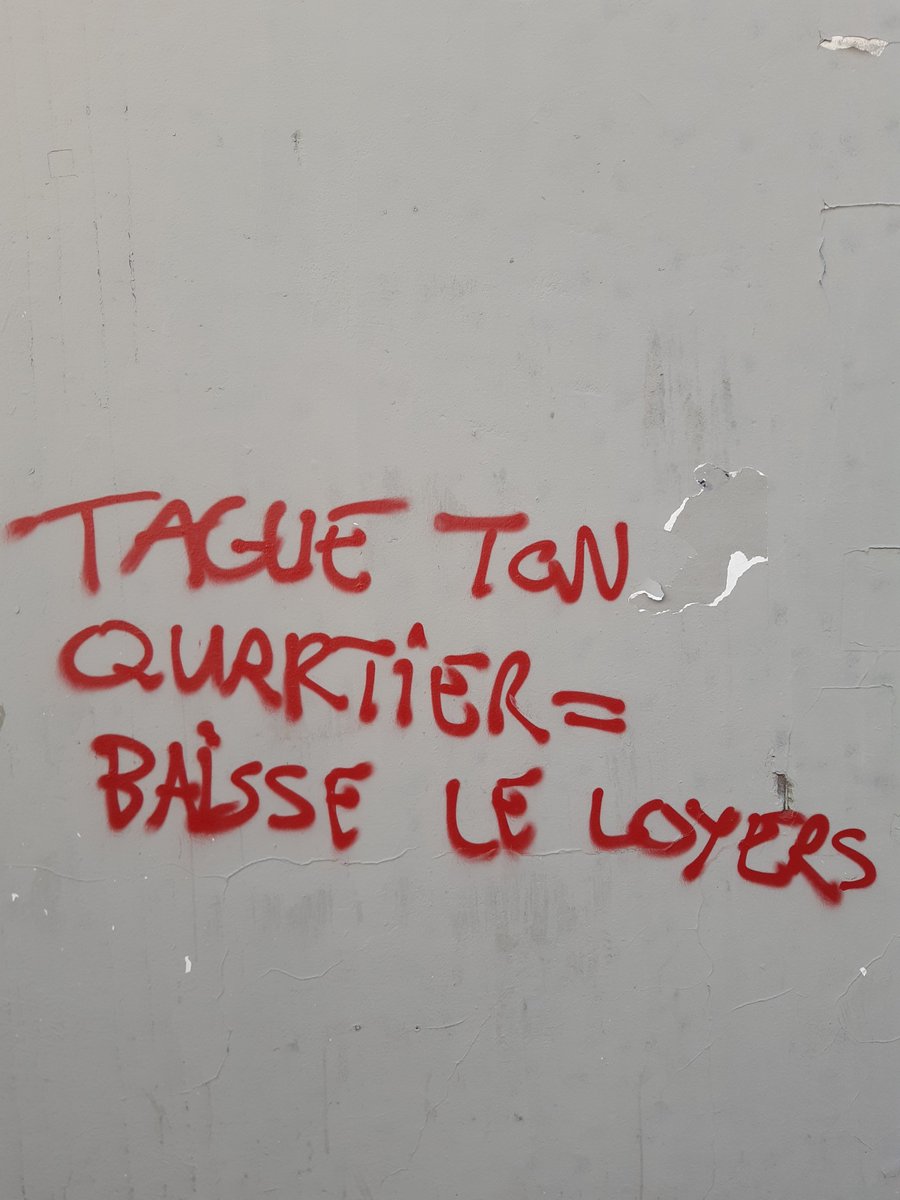 TAGUE TON
QUARTIER =
BAISSE LE LOYERS